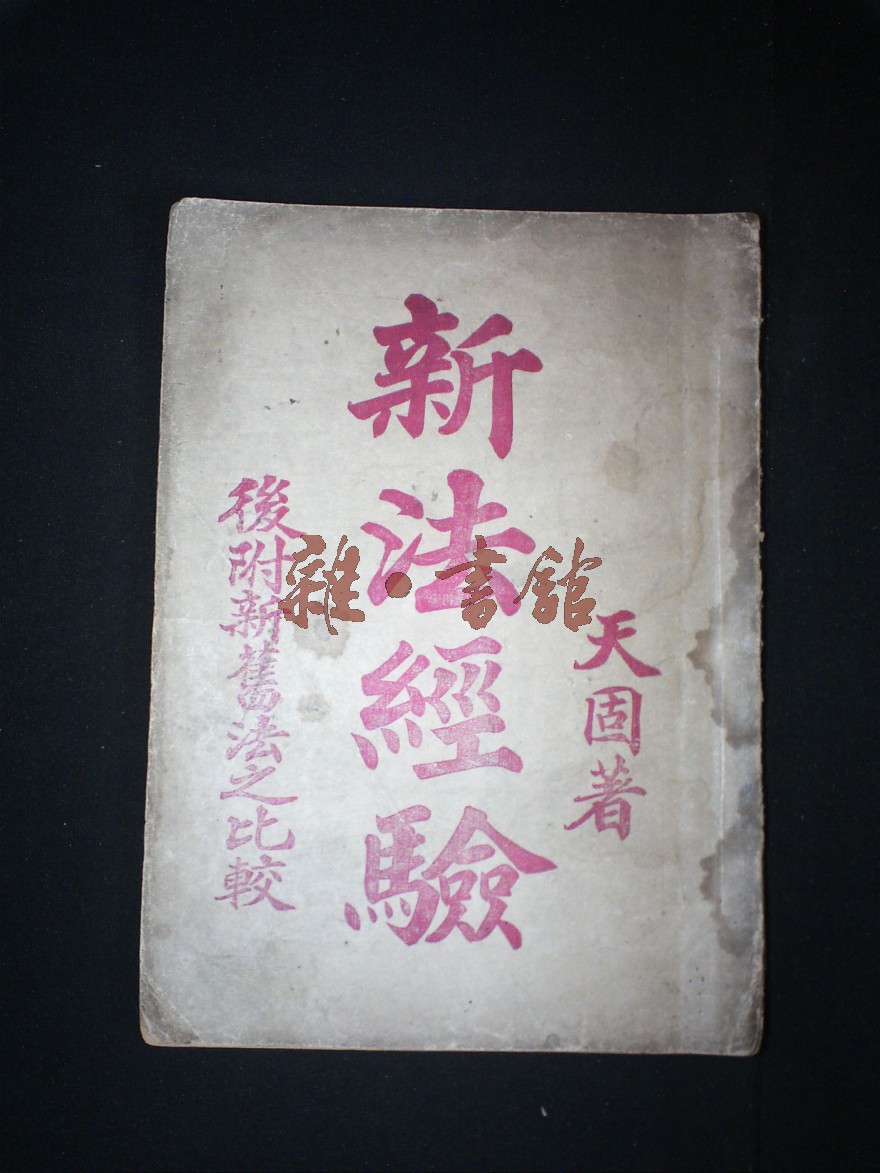 天固著
新法經驗
後附新舊法之比較
雜·書館